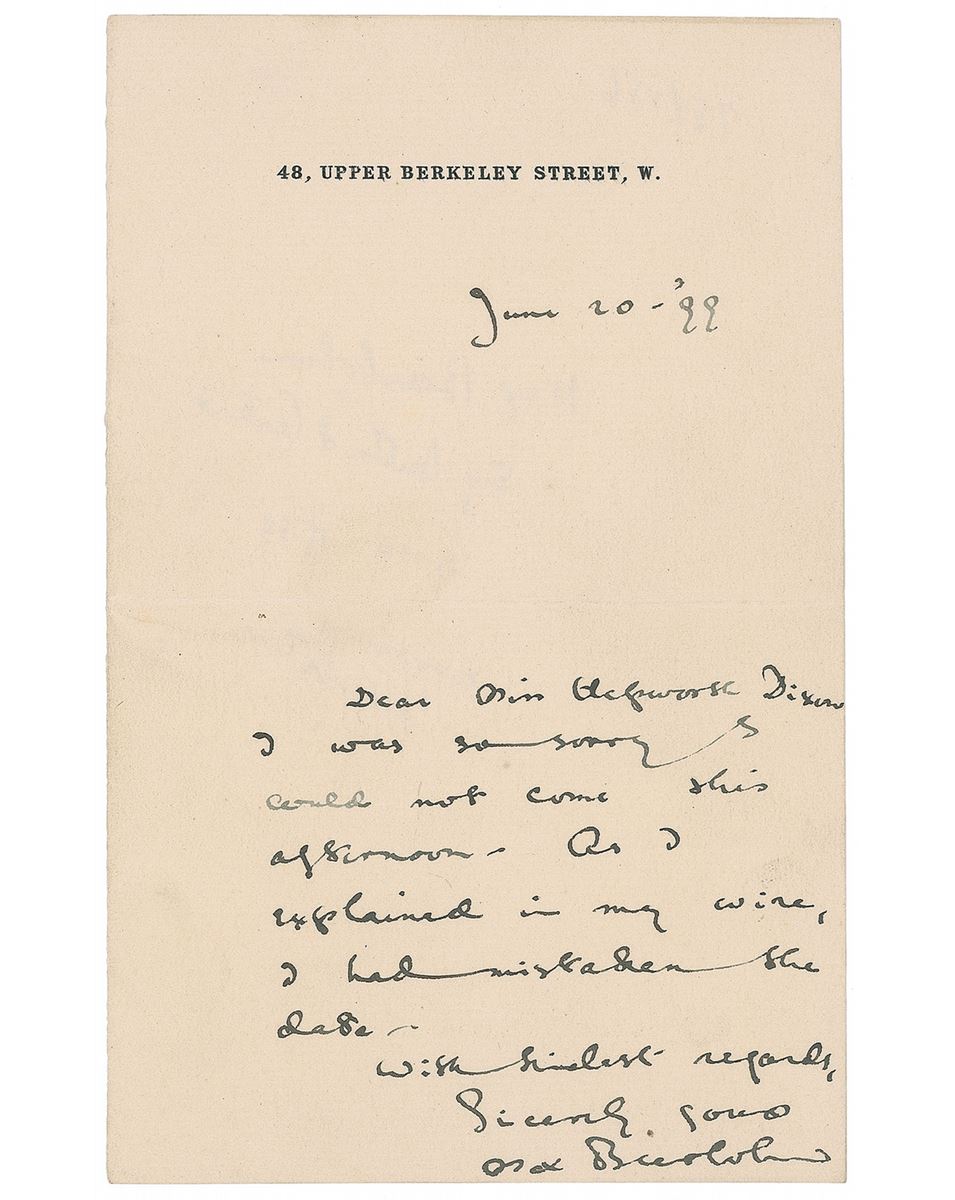 48, UPPER BERKELEY STREET, W.
June 20 - '99
Dear Miss Hepworth Dixon
I was so sorry I
could not come this
afternoon - As I
explained in my wire,
I had mistaken the
date -
With kindest regards,
Sincerely yours
Max Beerbohm